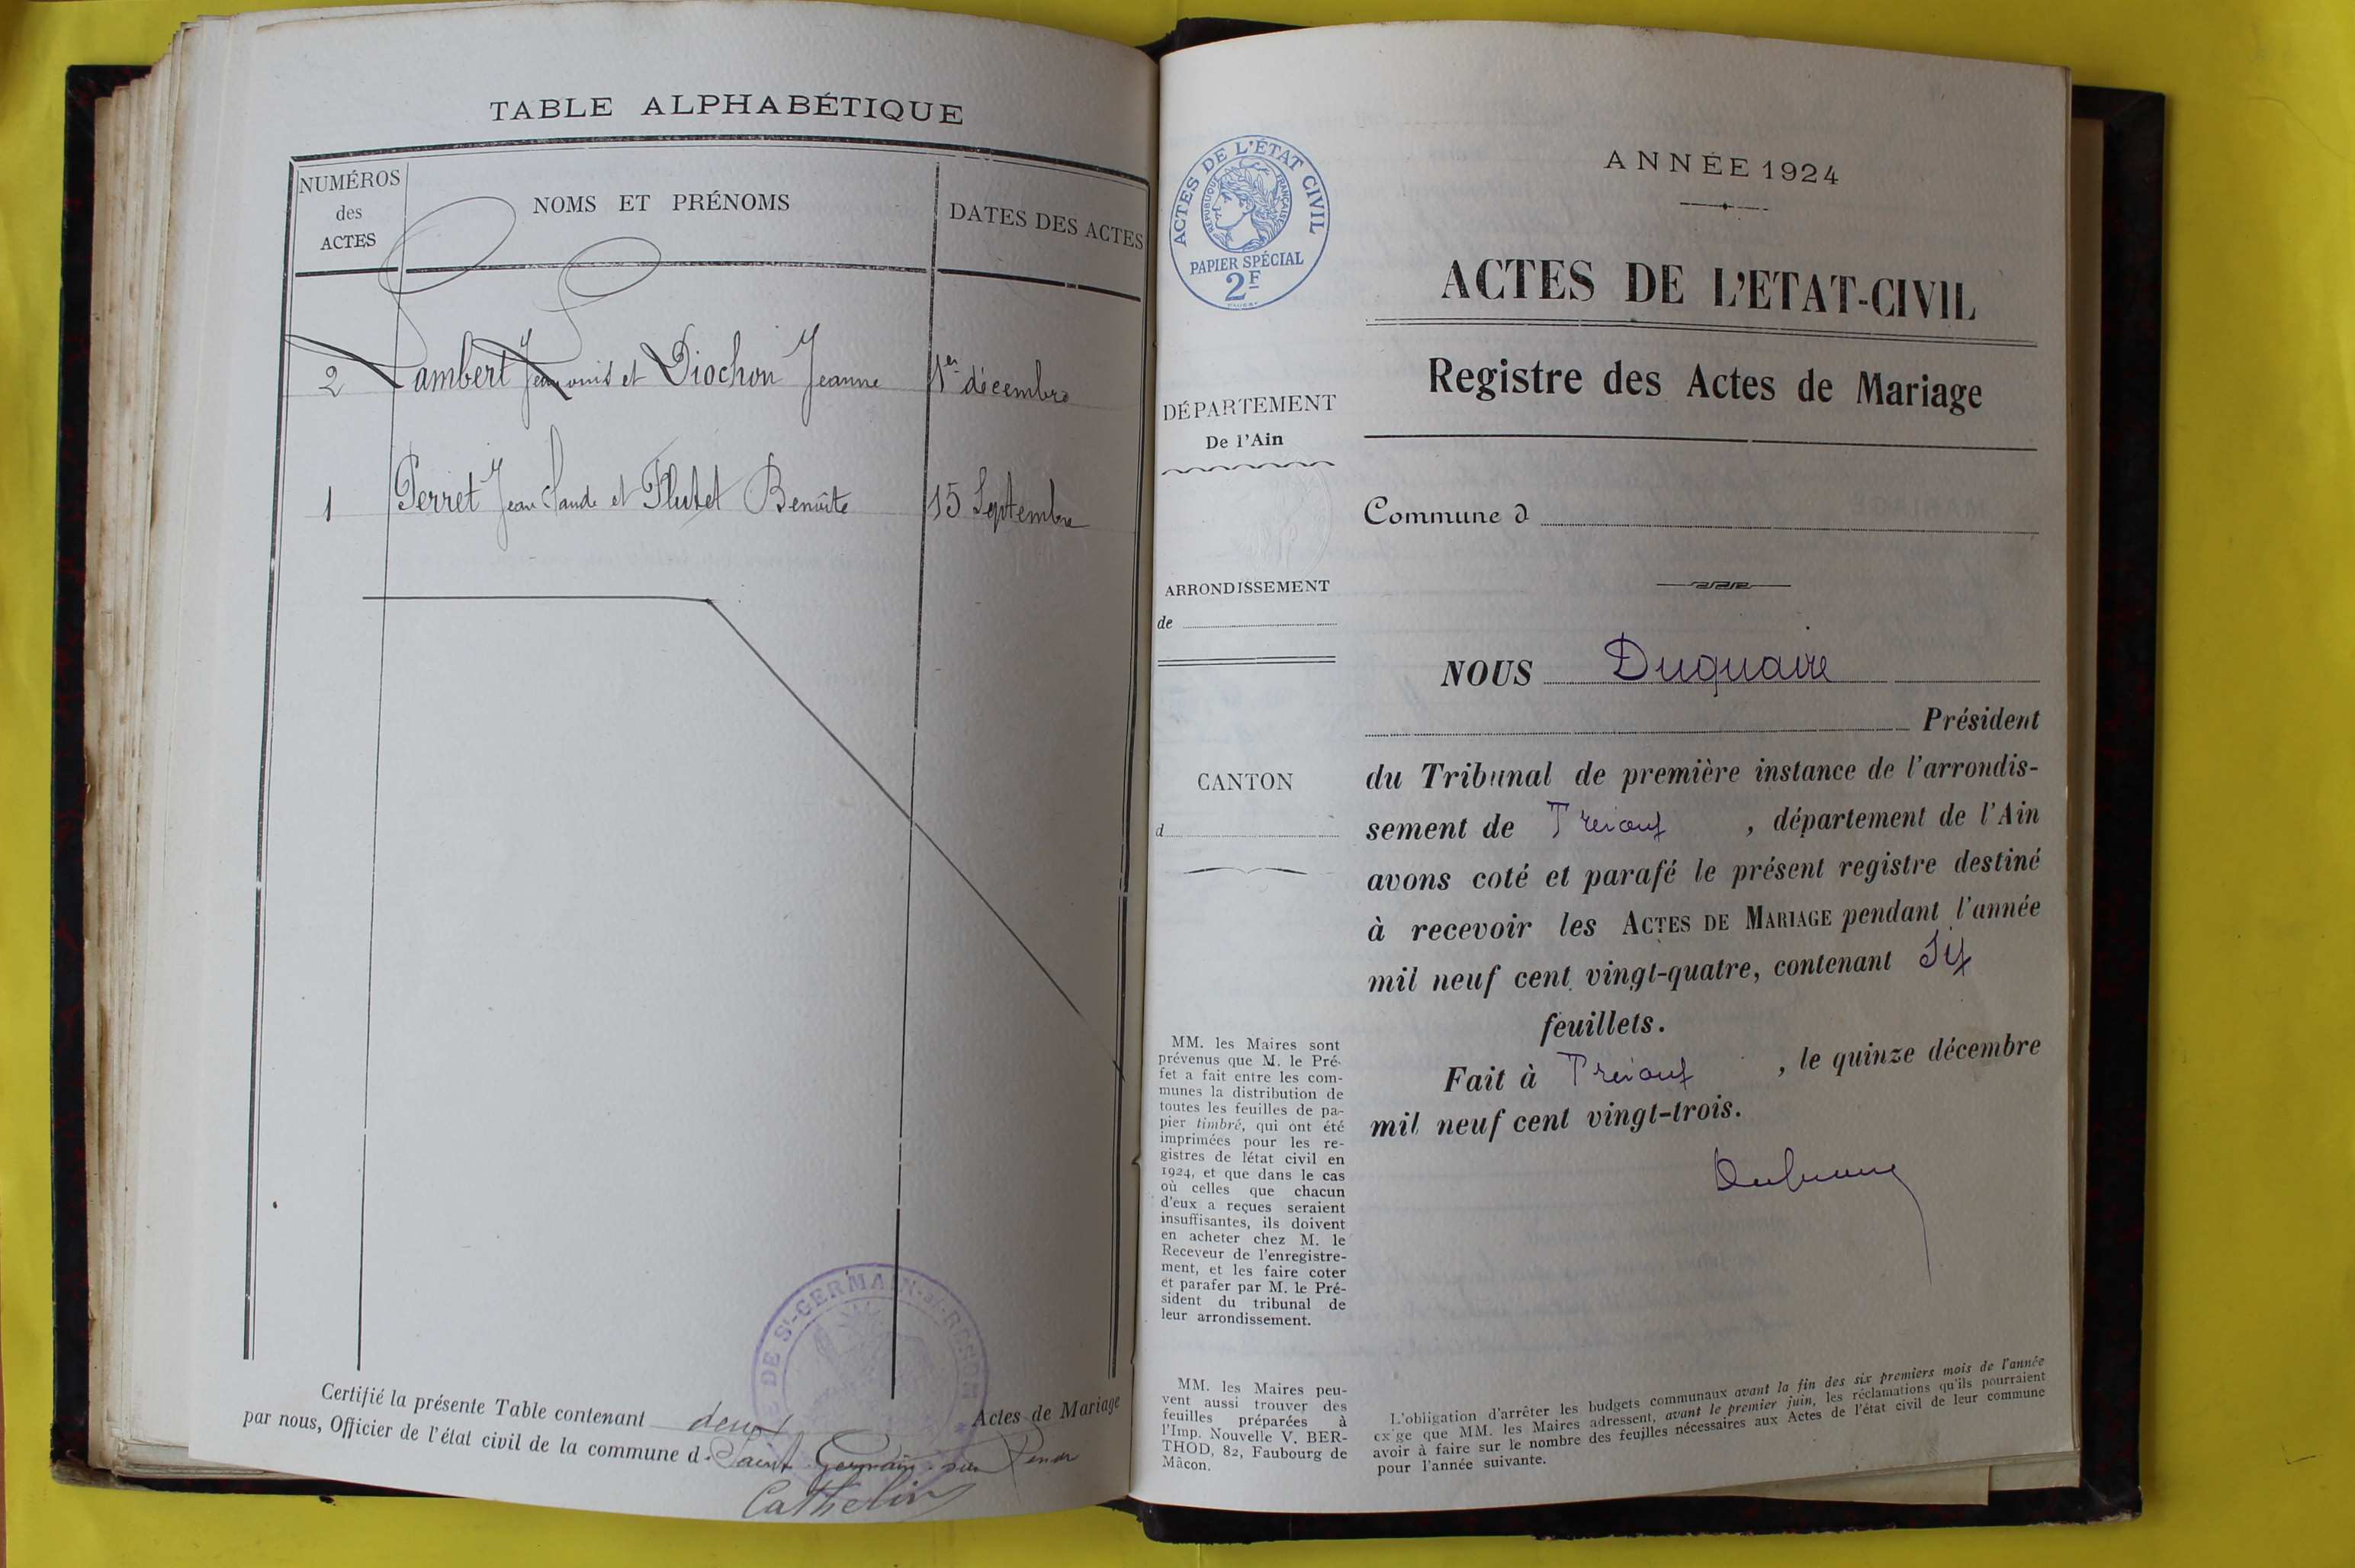 TABLE ALPHABÉTIQUE
NUMÉROS
des
ACTES
NOMS ET PRÉNOMS
DATES DES ACTES
2 Lambert et Diochon Jeanne 1er décembre
1 Perret Jean Claude et Flutet Benoîte 15 Septembre
Certifié la présente Table contenant deux Actes de Mariage
par nous, Officier de l'état civil de la commune d. Saint Germain sur Renon
Cathelin
DE St-GERMAIN-s/-RENON
ACTES DE L'ÉTAT CIVIL
RÉPUBLIQUE FRANÇAISE
PAPIER SPÉCIAL
2F
DÉPARTEMENT
De l'Ain
ARRONDISSEMENT
de
CANTON
d
MM. les Maires sont
prévenus que M. le Pré-
fet a fait entre les com-
munes la distribution de
toutes les feuilles de pa-
pier timbré, qui ont été
imprimées pour les re-
gistres de létat civil en
1924, et que dans le cas
où celles que chacun
d'eux a reçues seraient
insuffisantes, ils doivent
en acheter chez M. le
Receveur de l'enregistre-
ment, et les faire coter
et parafer par M. le Pré-
sident du tribunal de
leur arrondissement.
MM. les Maires peu-
vent aussi trouver des
feuilles préparées à
l'Imp. Nouvelle V. BER-
THOD, 82, Faubourg de
Mâcon.
ANNÉE 1924
ACTES DE L'ETAT-CIVIL
Registre des Actes de Mariage
Commune d
NOUS Duquaire
Président
du Tribunal de première instance de l'arrondis-
sement de Trévoux , département de l'Ain
avons coté et parafé le présent registre destiné
à recevoir les ACTES DE MARIAGE pendant l'année
mil neuf cent vingt-quatre, contenant Six
feuillets.
Fait à Trévoux , le quinze décembre
mil neuf cent vingt-trois.
L'obligation d'arrêter les budgets communaux avant la fin des six premiers mois de l'année
ex'ge que MM. les Maires adressent, avant le premier juin, les réclamations qu'ils pourraient
avoir à faire sur le nombre des feuilles nécessaires aux Actes de l'état civil de leur commune
pour l'année suivante.